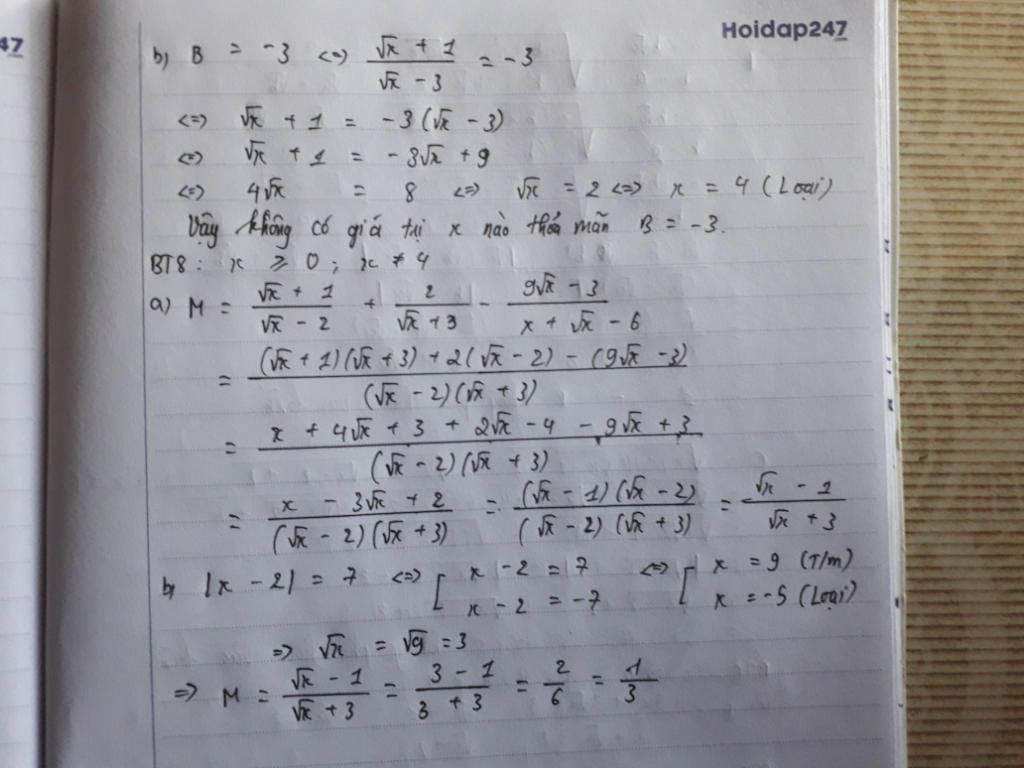 47
Hoidap247
b) B = -3 <=> (√x + 1)/(√x - 3) = -3
<=> √x + 1 = -3(√x - 3)
<=> √x + 1 = -3√x + 9
<=> 4√x = 8 <=> √x = 2 <=> x = 4 (Loại)
Vậy không có giá trị x nào thỏa mãn B = -3.
BT8: x ≥ 0; x ≠ 4
a) M = (√x + 1)/(√x - 2) + 2/(√x + 3) - (9√x - 3)/(x + √x - 6)
= ((√x + 1)(√x + 3) + 2(√x - 2) - (9√x - 3))/((√x - 2)(√x + 3))
= (x + 4√x + 3 + 2√x - 4 - 9√x + 3)/((√x - 2)(√x + 3))
= (x - 3√x + 2)/((√x - 2)(√x + 3)) = ((√x - 1)(√x - 2))/((√x - 2)(√x + 3)) = (√x - 1)/(√x + 3)
b) |x - 2| = 7 <=> [ x - 2 = 7 <=> [ x = 9 (T/m)
x - 2 = -7 x = -5 (Loại)
=> √x = √9 = 3
=> M = (√x - 1)/(√x + 3) = (3 - 1)/(3 + 3) = 2/6 = 1/3